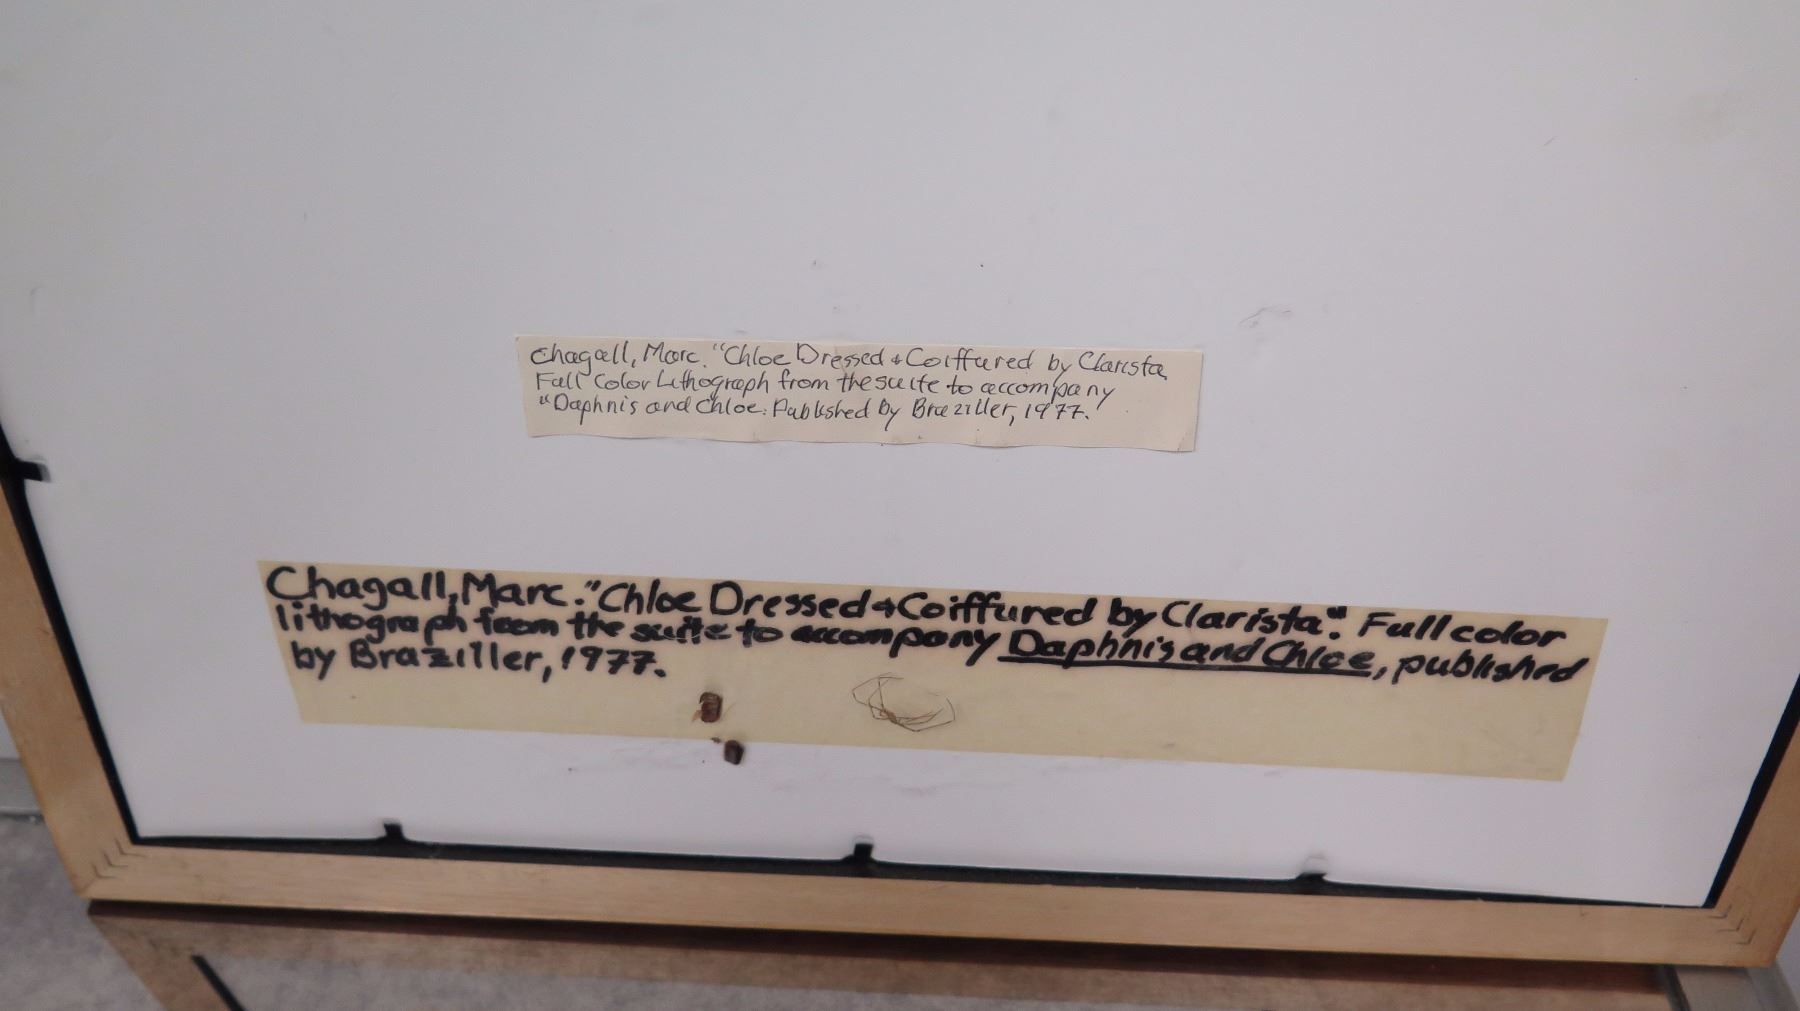 Chagall, Marc. "Chloe Dressed & Coiffured by Clarista,
Full Color Lithograph from the suite to accompany
"Daphnis and Chloe. Published By Braziller, 1977.
Chagall, Marc. "Chloe Dressed & Coiffured by Clarista". Full color
lithograph from the suite to accompany Daphnis and Chloe, published
by Braziller, 1977.